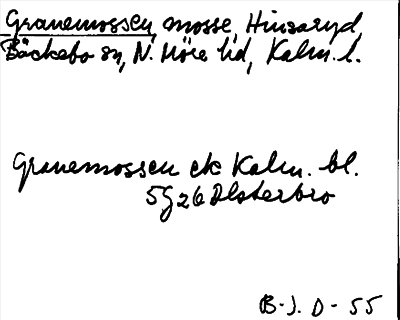 Granemossen, mosse, Hinsaryd,
Bäckebo sn, N. Möre hd, Kalm. l.
Granemossen ek Kalm. bl.
5G 26 Alsterbro
B-J. D - 55